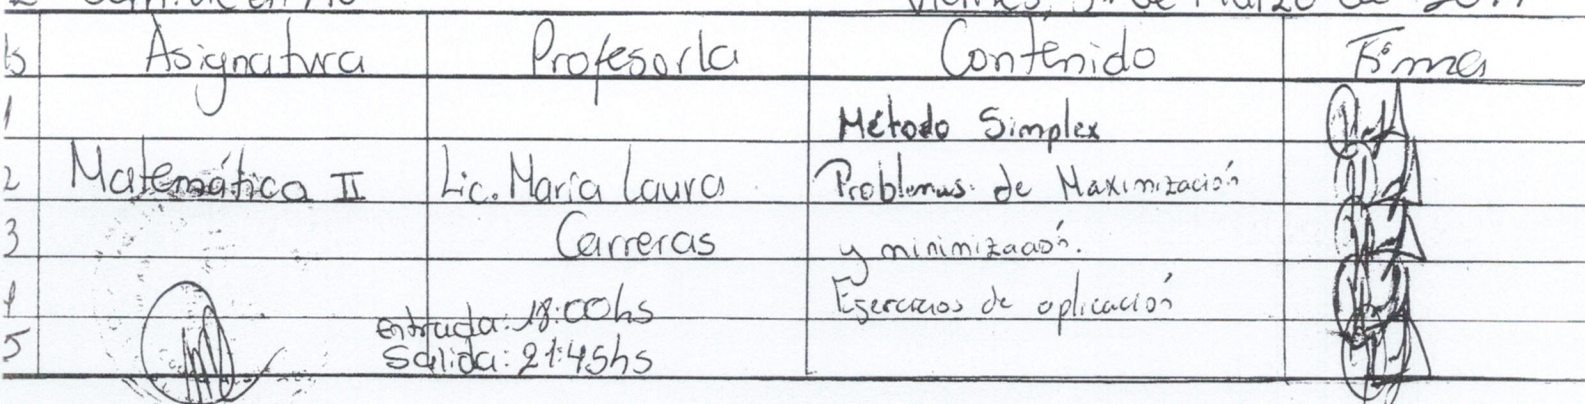 de Marzo de
Hs Asignatura Profesor/a Contenido Firma
1 Método Simplex
2 Matemática II Lic. María Laura Problemas de Maximización
3 Carreras y minimización.
4 Ejercicios de aplicación
entrada: 18:00hs
5 Salida: 21:45hs